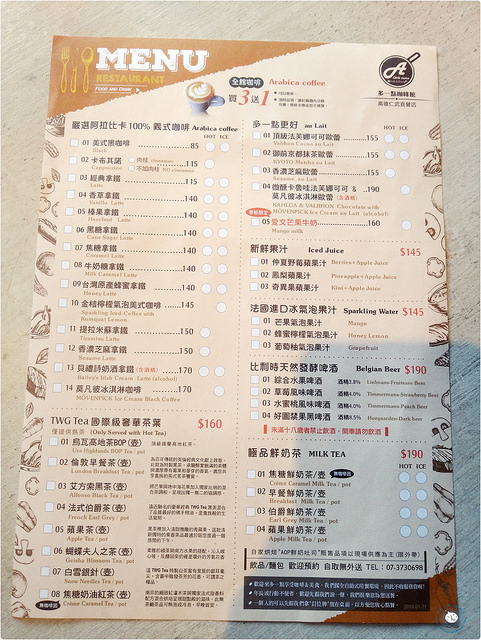 MENU
RESTAURANT
FOOD AND DRINK
全館咖啡 Arabica coffee
買3送1
多一點咖啡館
高雄仁武直營店
嚴選阿拉比卡100% 義式咖啡 Arabica coffee
HOT ICE
01 美式黑咖啡 85
Black
02 卡布其諾 肉桂 cinnamon 115
Cappuccino 不加肉桂 NO cinnamon
03 經典拿鐵 115
Latte
04 香草拿鐵 140
Vanilla Latte
05 榛果拿鐵 140
Hazelnut Latte
06 黑糖拿鐵 140
Cane Sugar Latte
07 焦糖拿鐵 140
Caramel Latte
08 牛奶糖拿鐵 140
Milk Caramel Latte
09 台灣原產蜂蜜拿鐵 140
Honey Latte
10 金桔檸檬氣泡美式咖啡 145
Sparkling Iced Coffee with
Kumquat Lemon
11 提拉米蘇拿鐵 150
Tiramisu Latte
12 香濃芝麻拿鐵 150
Sesame Latte
13 貝禮詩奶酒拿鐵 (含酒精) 170
Bailey's Irish Cream Latte (alcohol)
14 莫凡彼冰淇淋咖啡 170
MOVENPICK Ice Cream Black Coffee
TWG Tea 國際級奢華茶葉 $160
僅提供熱茶 (Only Served with Hot Tea)
01 烏瓦高地茶BOP (壺)
Uva Highlands BOP Tea / pot
02 倫敦早餐茶 (壺)
London Breakfast Tea / pot
03 艾方索黑茶 (壺)
Alfonso Black Tea / pot
04 法式伯爵茶 (壺)
French Earl Grey Tea / pot
05 蘋果茶 (壺)
Apple Tea / pot
06 蝴蝶夫人之茶 (壺)
Geisha Blossom Tea / pot
07 白雪銀針 (壺)
Snow Needles Tea / pot
08 焦糖奶油紅茶 (壺)
Crème Caramel Tea / pot
多一點更好 au Lait
HOT ICE
01 頂級法芙娜可可歐蕾 155
Valrhon Cacao au Lait
02 御前京都抹茶歐蕾 155
KYOTO Matcha au Lait
03 香濃芝麻歐蕾 155
Sesame au Lait
04 微醺卡魯哇法芙娜可可 & 190
莫凡彼冰淇淋歐蕾 (含酒精)
KAHLÚA & VALRHON Chocolate with
MOVENPICK Ice Cream au Lait (alcohol)
季節限定
05 愛文芒果牛奶 160
Mango milk
新鮮果汁 Iced Juice $145
01 仲夏野莓蘋果汁 Berries+Apple Juice
02 鳳梨蘋果汁 Pineapple+Apple Juice
03 奇異果蘋果汁 Kiwi+Apple Juice
法國進口冰氣泡果汁 Sparkling Water $145
01 芒果氣泡果汁 Mango
02 蜂蜜檸檬氣泡果汁 Honey Lemon
03 葡萄柚氣泡果汁 Grapefruit
比利時天然發酵啤酒 Belgian Beer $190
01 綜合水果啤酒 酒精3.8% Liefmans Fruitesse Beer
02 草莓風味啤酒 酒精4.0% Timmermans-Strawberry Beer
03 水蜜桃風味啤酒 酒精4.0% Timmermans-Peach Beer
04 好園禁果黑啤酒 酒精8.5% Hoegaarden-Dark beer
未滿十八歲者禁止飲酒．開車請勿飲酒
極品鮮奶茶 MILK TEA $190
HOT ICE
01 焦糖鮮奶茶/壺
Crème Caramel Milk Tea / pot
02 早餐鮮奶茶/壺
Breakfast Milk Tea / pot
03 伯爵鮮奶茶/壺
Earl Grey Milk Tea / pot
04 蘋果鮮奶茶/壺
Apple Milk Tea / pot
自家烘焙"AOP鮮奶吐司"販售品項以現場供應為主(限外帶)
飲品/麵包 歡迎預約 自取無外送 TEL：07-3730698